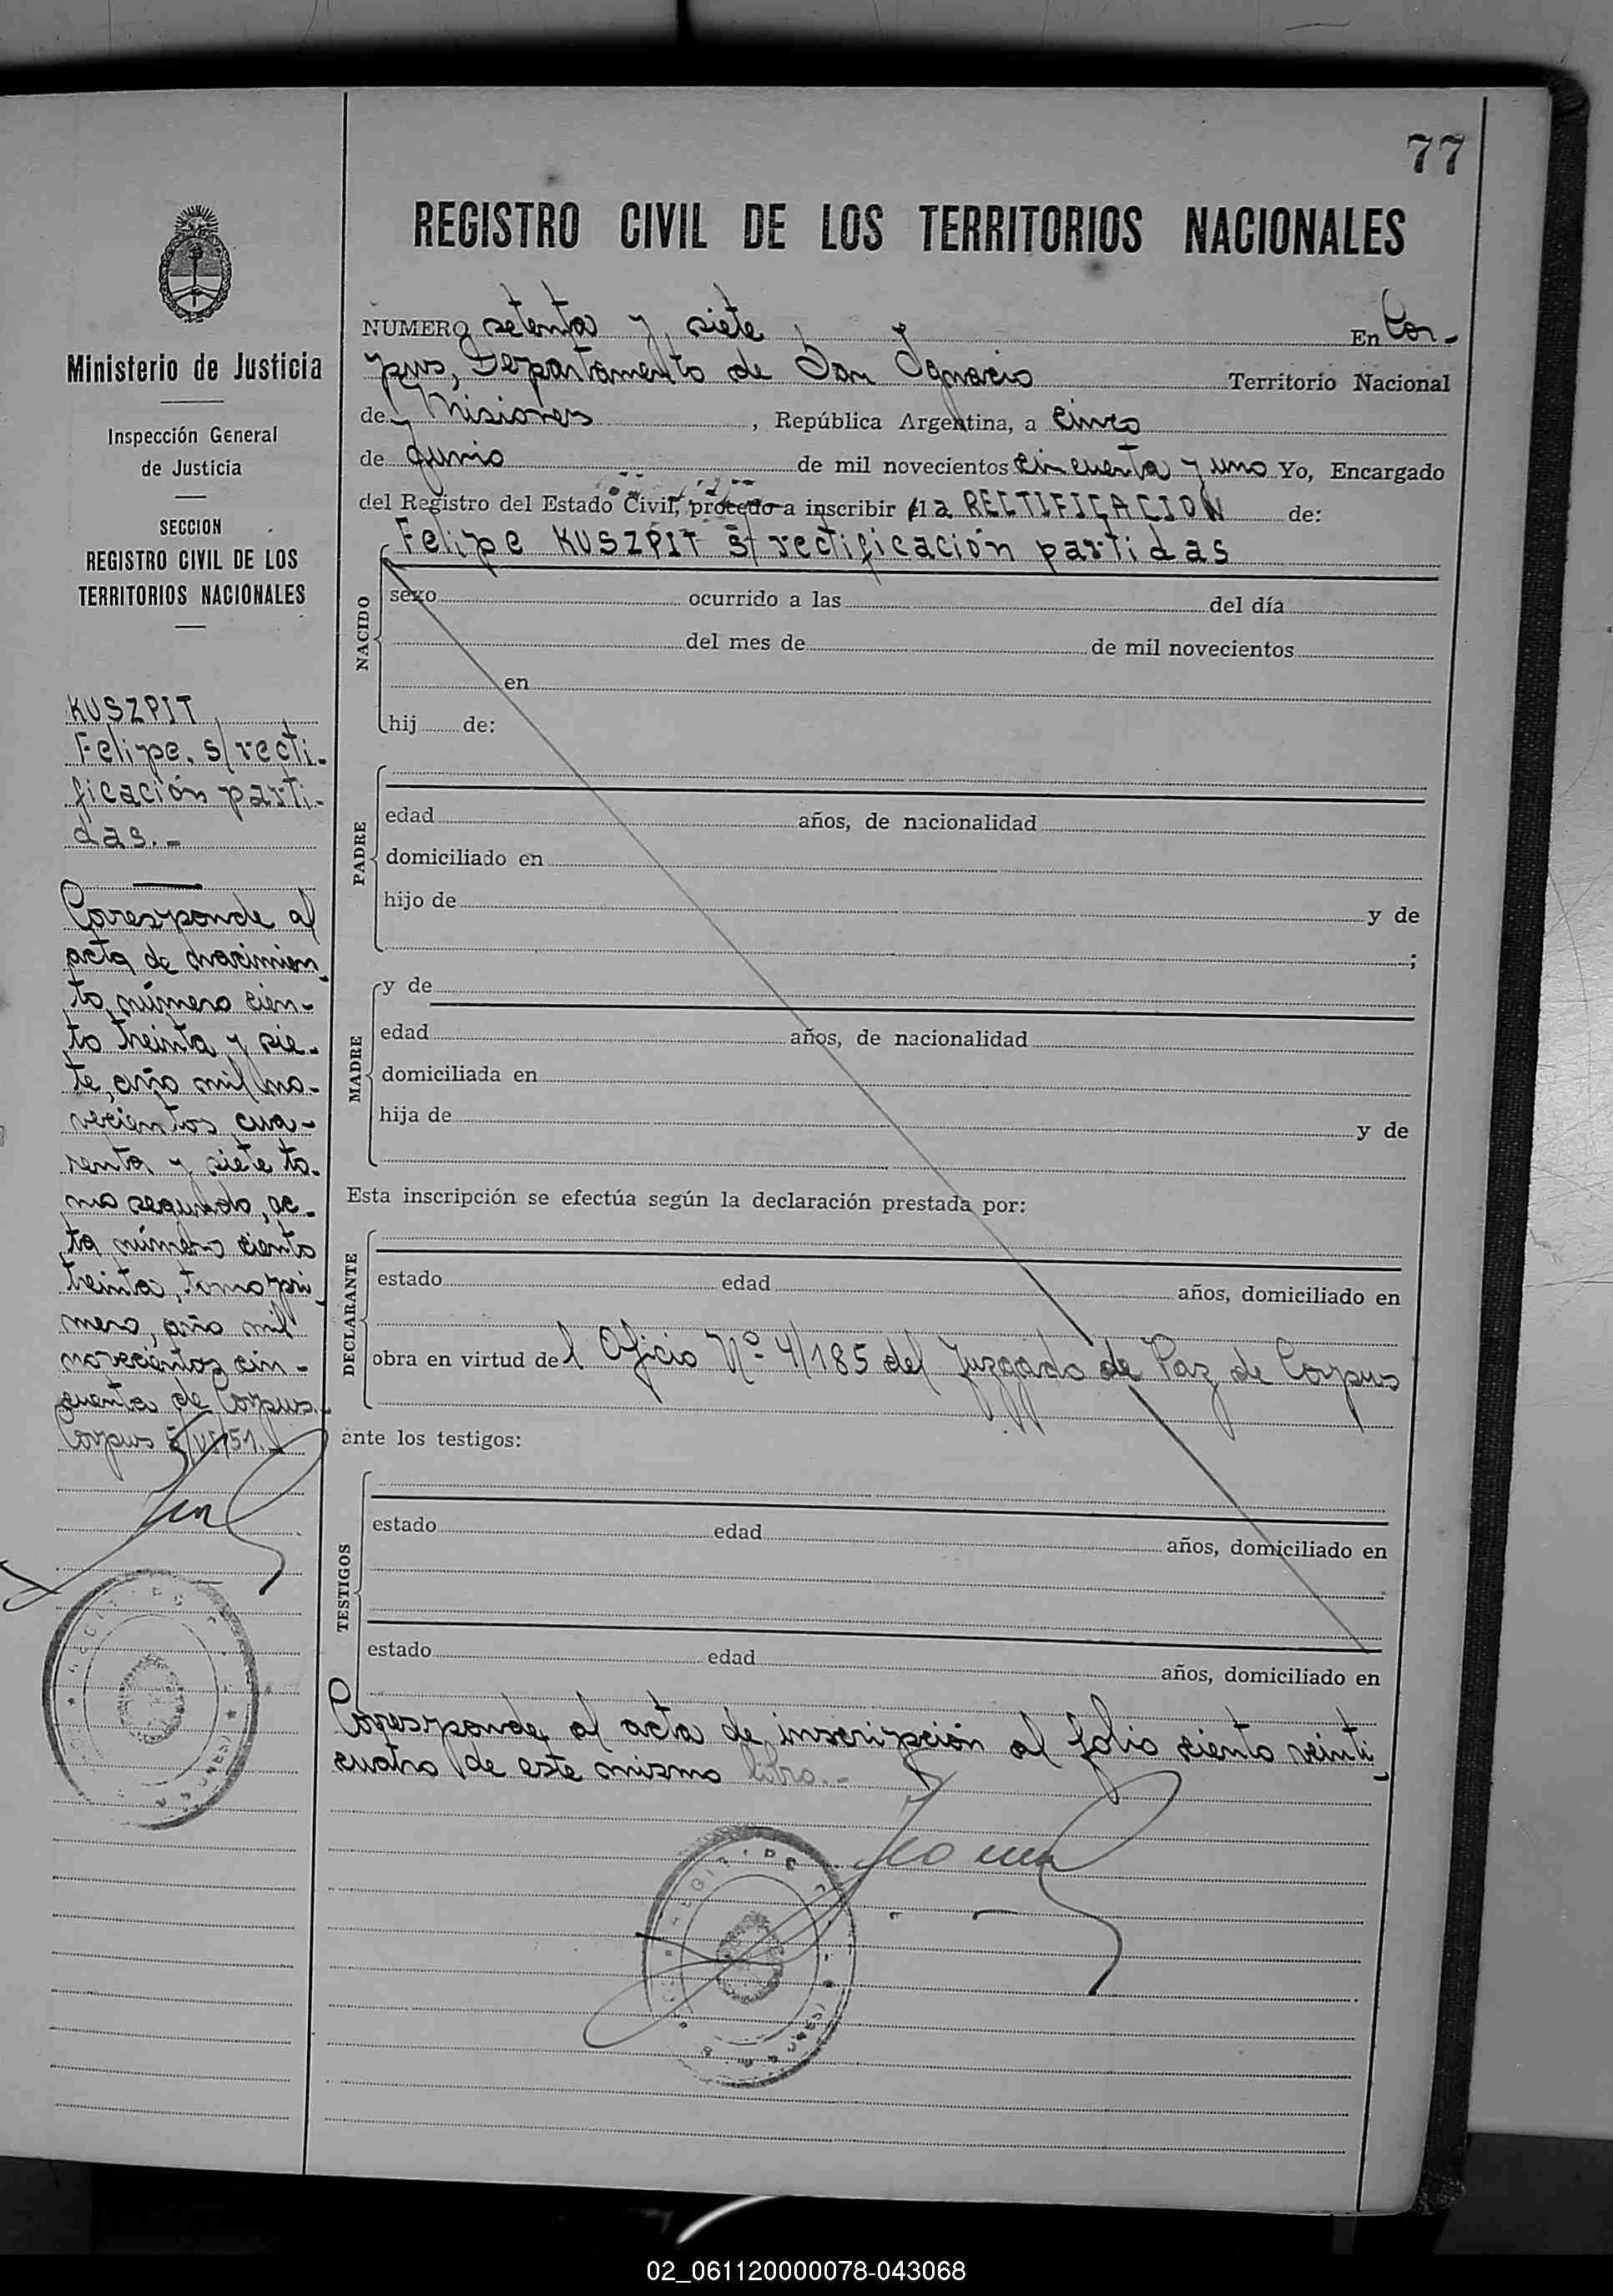 77
REGISTRO CIVIL DE LOS TERRITORIOS NACIONALES
Ministerio de Justicia
Inspección General
de Justicia
SECCION
REGISTRO CIVIL DE LOS
TERRITORIOS NACIONALES
KUSZPIT
Felipe. s/recti-
ficación parti-
das.-
Corresponde al
acta de nacimien-
to número cien-
to treinta y sie-
te, año mil no-
vecientos cua-
renta y siete to-
mo segundo, ac-
ta número ciento
treinta, tomo pri-
mero, año mil
novecientos cin-
cuenta de Corpus.
Corpus 5/VI/51.-
NUMERO setenta y siete En Cor-
pus, Departamento de San Ignacio Territorio Nacional
de Misiones, República Argentina, a cinco
de Junio de mil novecientos cincuenta y uno Yo, Encargado
del Registro del Estado Civil, procedo a inscribir la RECTIFICACION de:
Felipe KUSZPIT s/ rectificación partidas
NACIDO
sexo ocurrido a las del día
del mes de de mil novecientos
en
hij de:
PADRE
edad años, de nacionalidad
domiciliado en
hijo de y de
;
MADRE
y de
edad años, de nacionalidad
domiciliada en
hija de y de
Esta inscripción se efectúa según la declaración prestada por:
DECLARANTE
estado edad años, domiciliado en
obra en virtud del Oficio Nº 4/185 del Juzgado de Paz de Corpus
ante los testigos:
TESTIGOS
estado edad años, domiciliado en
estado edad años, domiciliado en
Corresponde al acta de inscripción al folio ciento veinti-
cuatro de este mismo libro.-
02_061120000078-043068